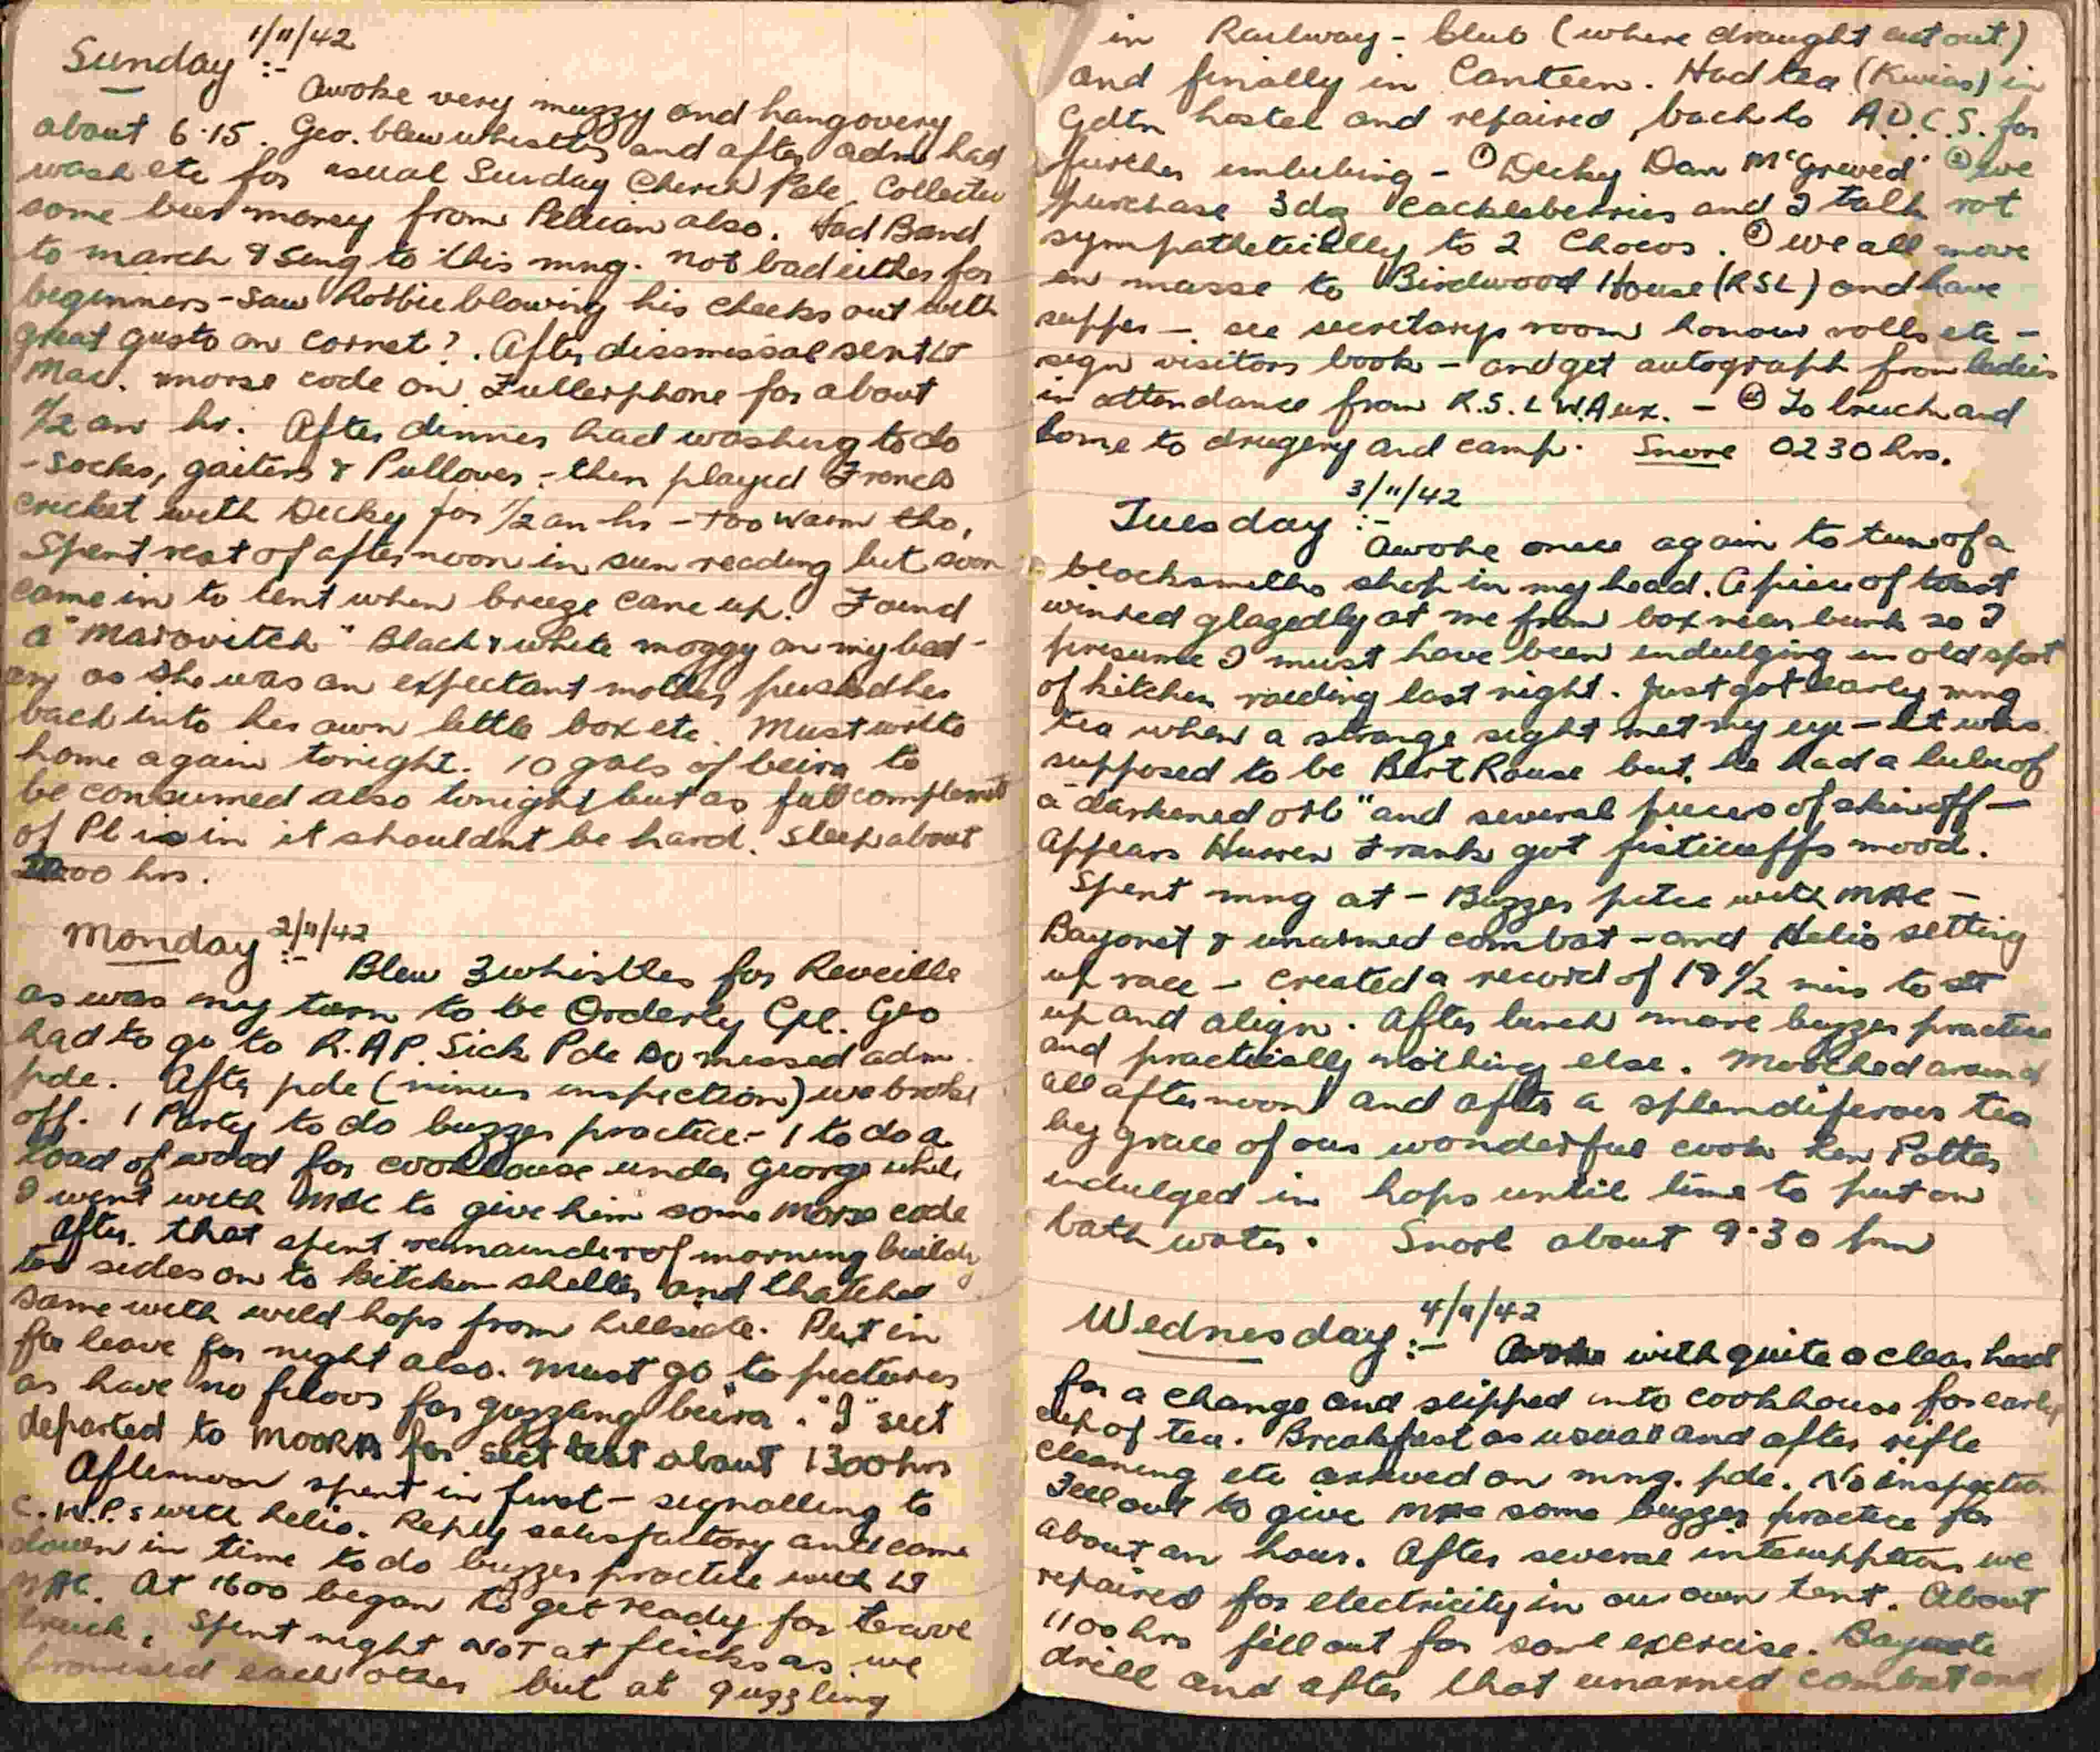 Sunday :- 1/11/42
Awoke very muzzy and hangovery
about 6.15. Geo. blew whistles and after adm had
wash etc for usual Sunday Church Pde. Collected
some beer money from Pellican also. Had Band
to march & sing to this mng. not bad either for
beginners - saw Robbie blowing his cheeks out with
great gusto on cornet?. After dissmissal sent Lt
Mac. morse code on Fullerphone for about
1/2 an hr. After dinner had washing to do
- socks, gaiters & Pullover - then played French
cricket with Decky for 1/2 an hr - too warm tho,
Spent rest of afternoon in sun reading but soon
came in to tent when breeze came up. Found
a "Marovitch" Black & white moggy on my bed -
as she was an expectant mother pushed her
back into her own little box etc. Must write
home again tonight. 10 gals of beira to
be consumed also tonight but as full complement
of Pl is in it shouldnt be hard. Sleep about
00 hrs.
Monday :- 2/11/42
Blew 3 whistles for Reveille
as was my turn to be Orderly Cpl. Geo
had to go to R.A.P. Sick Pde so missed adm.
pde. After pde (minus inspection) we broke
off. 1 Party to do buzzer practice - 1 to do a
load of wood for cookhouse under George while
I went with MAC to give him some morse code
After that spent remainder of morning building
two sides on to kitchen shelter and thatched
same with wild hops from hillside. Put in
for leave for night also. Must go to pictures
as have no filoos for guzzang beira. "J" sect
departed to MOORA for sect test about 1300 hrs
Afternoon spent in first - signalling to
C.W.P.s with helio. Reply satisfactory and came
down in time to do buzzer practice with Lt
MAC. At 1600 began to get ready for leave
truck. Spent night NOT at flicks as we
promised each other but at guzzling
in Railway - Club (where draught cut out)
and finally in Canteen. Had tea (Kwias) in
Gdtn hostel and repaired back to A.D.C.S. for
further imbibing - ① Decky "Dan McGrewed" ② we
purchase 3 dz cackleberries and I talk rot
sympathetically to 2 Chocos. ③ we all move
en masse to Birdwood House (RSL) and have
supper - see secretarys room honour rolls etc -
sign visitors book - and get autograph from ladies
in attendance from R.S.L W.Aux. - ④ To truck and
home to drugery and camp. Snore 0230 hrs.
Tuesday :- 3/11/42
Awoke once again to tune of a
blacksmiths shop in my head. A piece of toast
winked glazedly at me from box near bunk so I
presume I must have been indulging in old sport
of kitchen raiding last night. Just got early mng
tea when a strange sight met my eye - it was
supposed to be Bert Rouse but he had a lulu of
a "darkened orb" and several pieces of skin off -
Appears Frank got fisticuffs mood.
Spent mng at - Buzzer pctce with MAC -
Bayonet & unarmed combat - and Helio setting
up race - created a record of 18 1/2 mins to set
up and align. After lunch more buzzer practice
and practically nothing else. Mooched around
all afternoon and after a splendiferous tea
by grace of our wonderful cook Ken Potter
indulged in hops until time to put on
bath water. Snore about 9.30 pm
Wednesday :- 4/11/42
Awoke with quite a clear head
for a change and slipped into cookhouse for early
cup of tea. Breakfast as usual and after rifle
cleaning etc arrived on mng. pde. No inspection
Fell out to give MAC some buzzer practice for
about an hour. After several interupptions we
repaired for electricity in our own tent. About
1100 hrs fell out for some exercise. Bayonet
drill and after that unarmed combat and